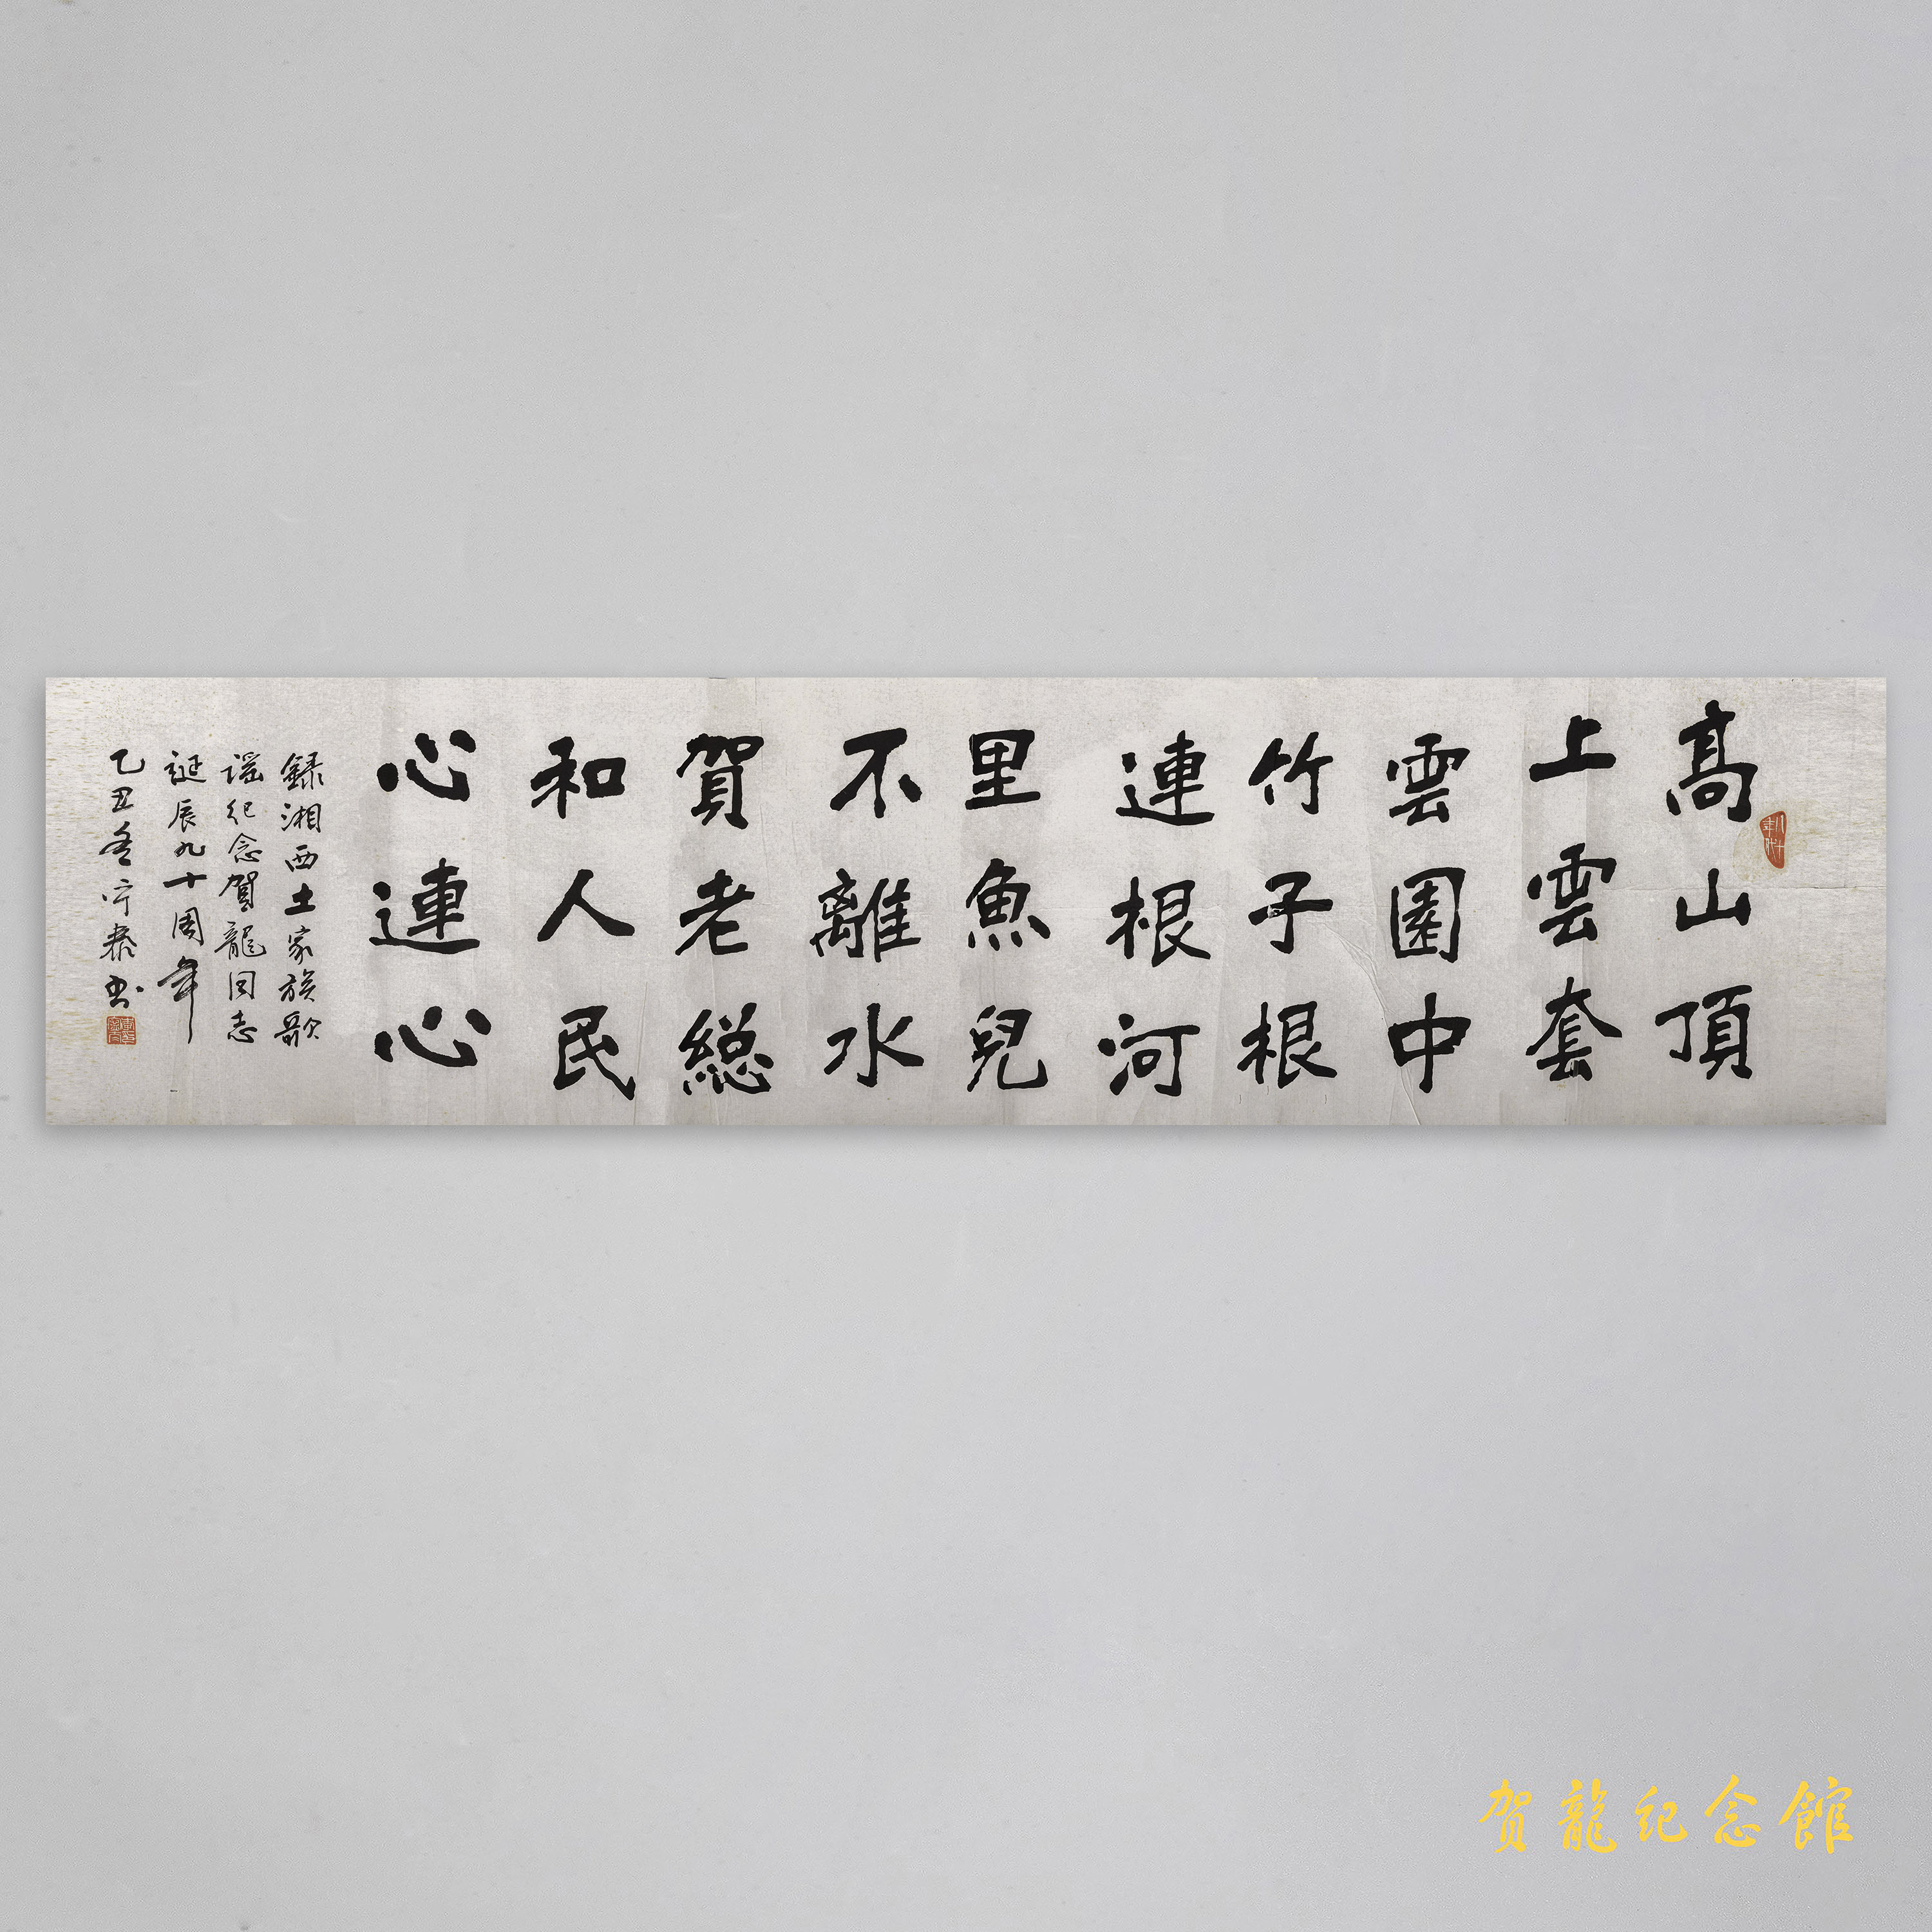 高山頂
上雲套
雲園中
竹子根
連根河
里魚兒
不離水
賀老総
和人民
心連心
録湘西土家族歌
謡纪念賀龍同志
誕辰九十周年
乙丑冬
书
贺龍纪念館